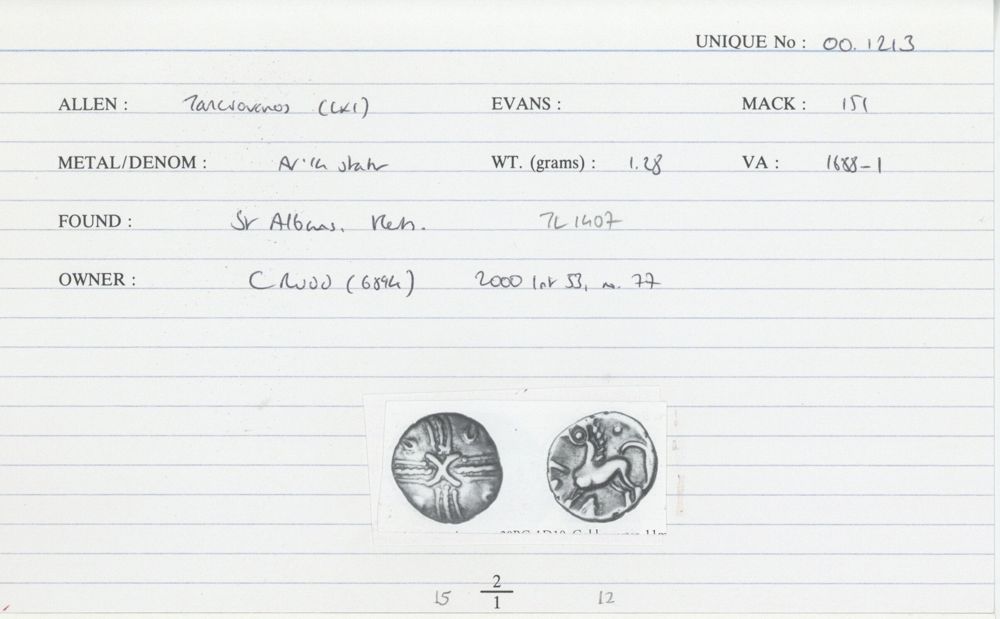 UNIQUE No : 00.1213
ALLEN : Tasciovanos (LX1) EVANS : MACK : 151
METAL/DENOM : AV 1/4 stater WT. (grams) : 1.28 VA : 1688-1
FOUND : St Albans, Herts. TL 1407
OWNER : C RUDD (6894) 2000 list 53, no. 77
2
15 12
1